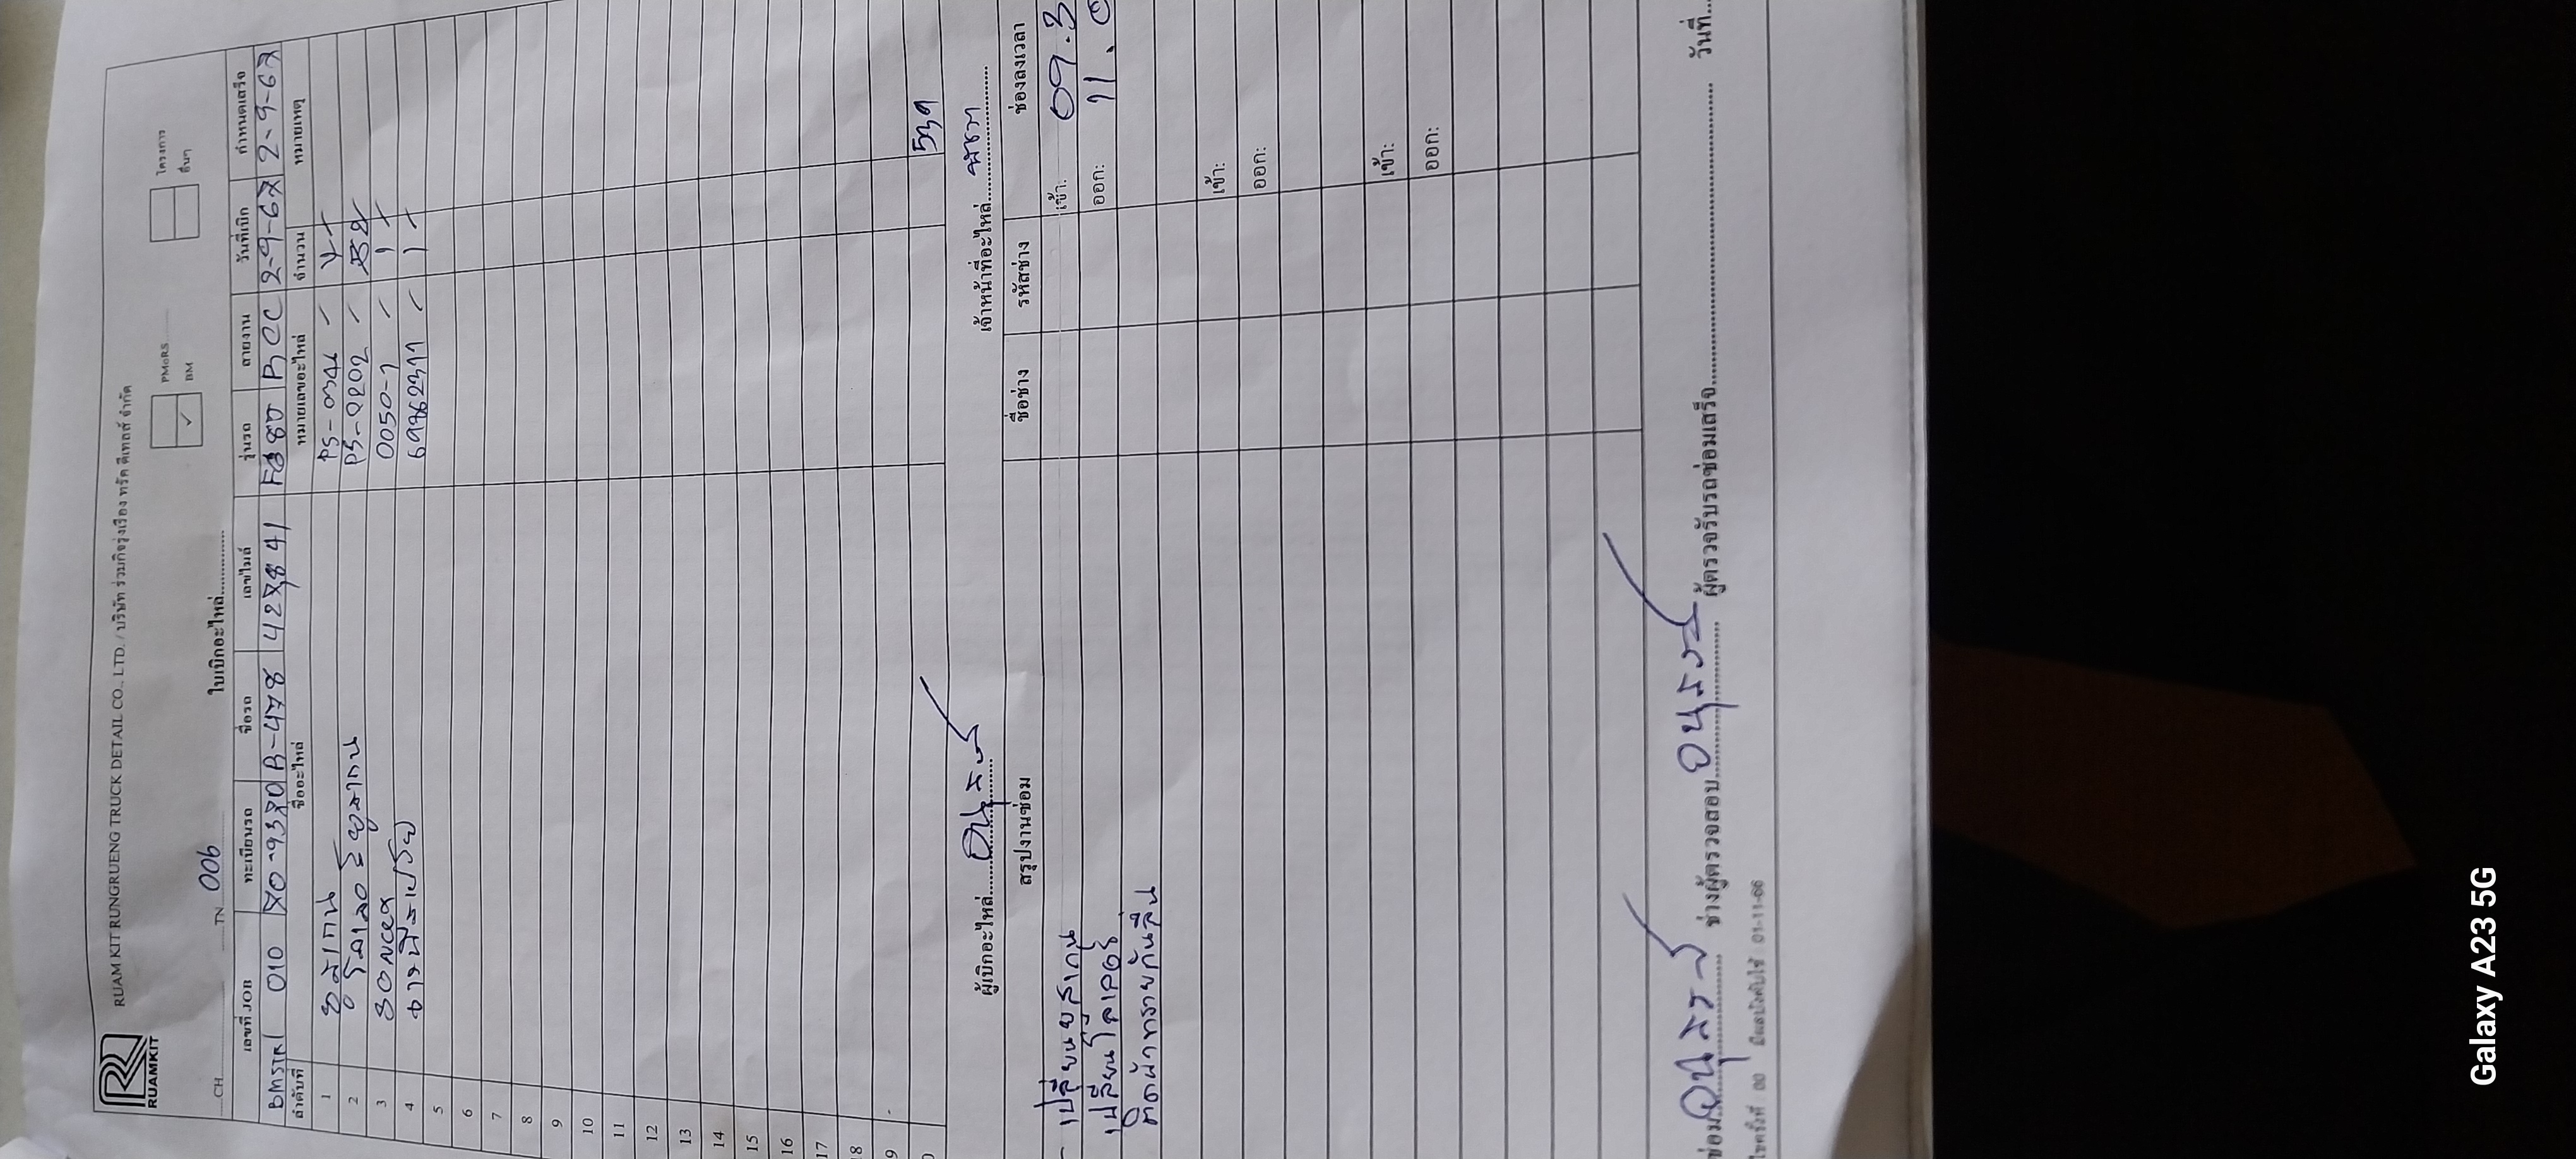 RUAMKIT
RUAM KIT RUNGRUENG TRUCK DETAIL CO., LTD. / บริษัท ร่วมกิจรุ่งเรือง ทรัค ดีเทลส์ จำกัด
PMoRS
โครงการ
✓ BM
อื่นๆ
CH TN 006 ใบเบิกอะไหล่
เลขที่ JOB ทะเบียนรถ ชื่อรถ เลขไมล์ รุ่นรถ สายงาน วันที่เบิก กำหนดเสร็จ
010 70-9370 B-478 427,841 BCC 2-9-67 2-9-67
ลำดับที่ ชื่ออะไหล่ หมายเลขอะไหล่ จำนวน หมายเหตุ
1 ยูสเกน
2 PS-0202
3 0050-1 1
4 69862311 1
5
6
7
8
9
10
11
12
13
14
15
16
17
18
9
539
ผู้เบิกอะไหล่ เจ้าหน้าที่อะไหล่
สรุปงานซ่อม ชื่อช่าง รหัสช่าง ช่องลงเวลา
- เปลี่ยนยูสเกน เข้า: 09.3
เปลี่ยนโลเลอร์ ออก: 11.0
ติดผ้าทรายกันลื่น
เข้า:
ออก:
เข้า:
ออก:
ซ่อม ช่างผู้ตรวจสอบ ผู้ตรวจรับรถซ่อมเสร็จ วันที่
ครั้งที่ 00 มีผลบังคับใช้ 01-11-66
Galaxy A23 5G